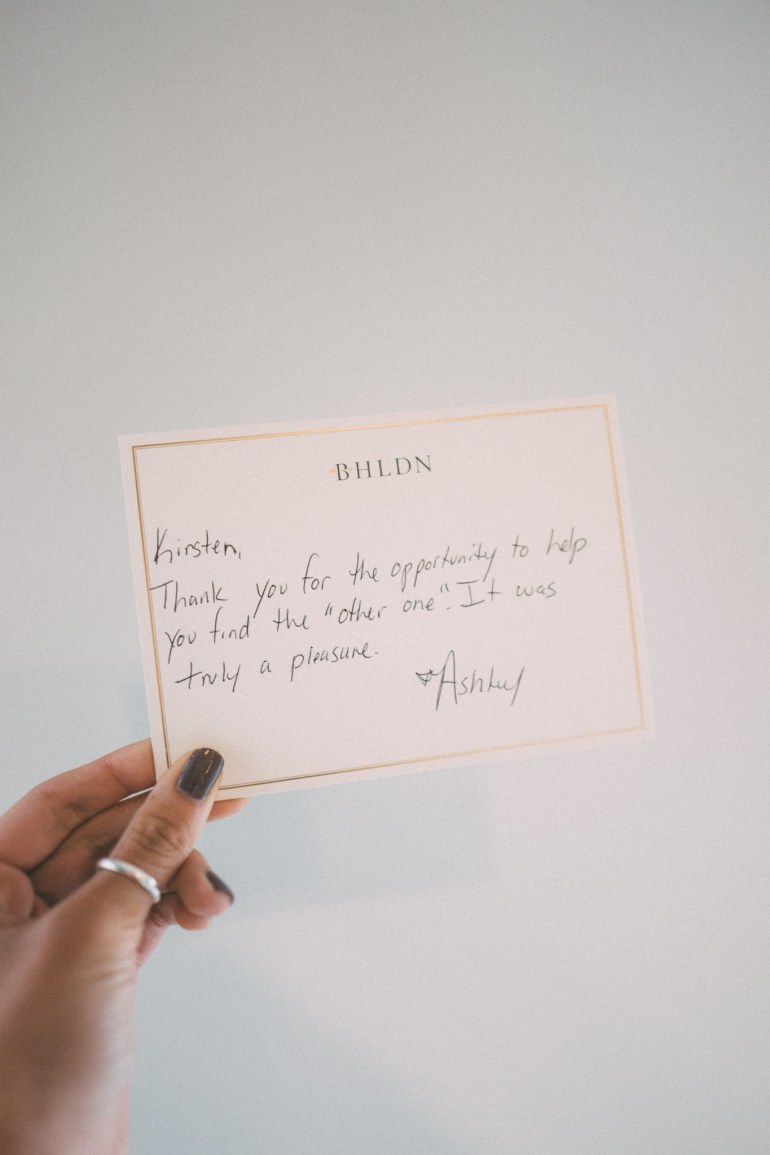 BHLDN
Kirsten,
Thank you for the opportunity to help
you find the "other one". It was
truly a pleasure.
♥Ashley